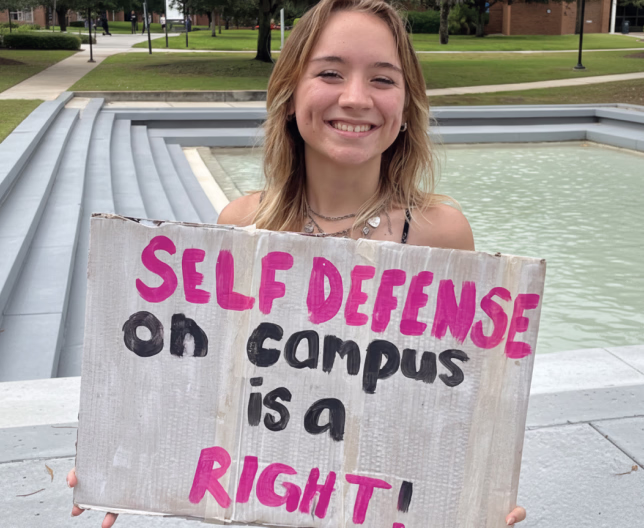 SELF DEFENSE
on campus
is a
RIGHT!